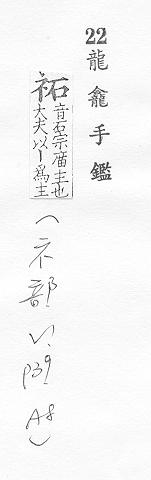 22龍龕手鑑
祏
音石宗廟主也
大夫以一爲主
(示部V.1 P39 A8)